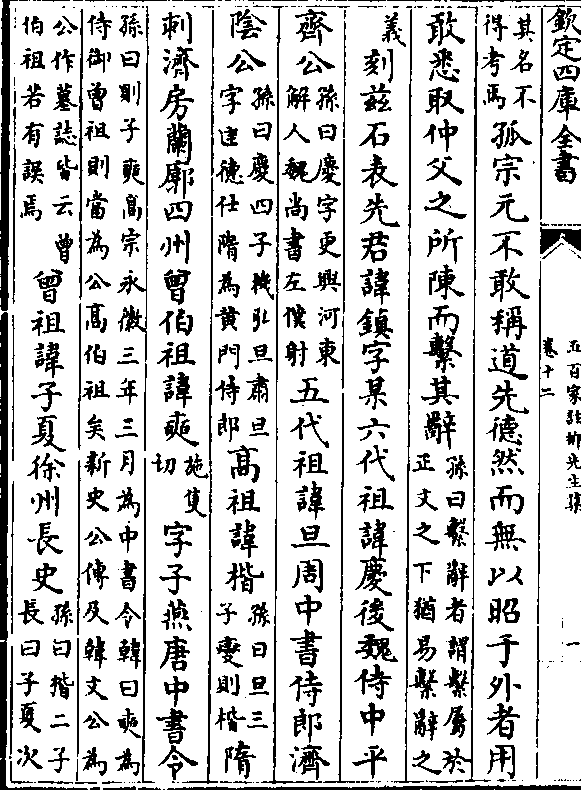 欽定四庫全書
五百家註柳先生集
卷十二
一
其名不
得考焉
孤宗元不敢稱道先德然而無以昭于外者用
敢悉取仲父之所陳而繫其辭
孫曰繫辭者謂繫屬於
正文之下猶易繫辭之
義
刻茲石表先君諱鎮字某六代祖諱慶後魏侍中平
齊公
孫曰慶字更興河東
解人魏尚書左僕射
五代祖諱旦周中書侍郎濟
陰公
孫曰慶四子機弘旦肅旦
字匡德仕隋為黃門侍郎
高祖諱楷
孫曰旦三
子燮則楷
隋
刺濟房蘭廓四州曾伯祖諱奭
施隻
切
字子燕唐中書令
孫曰則子奭高宗永徽三年三月為中書令韓曰奭為
侍御曾祖則當為公高伯祖矣新史公傳及韓文公為
公作墓誌皆云曾
伯祖若有誤焉
曾祖諱子夏徐州長史
孫曰揩二子
長曰子夏次